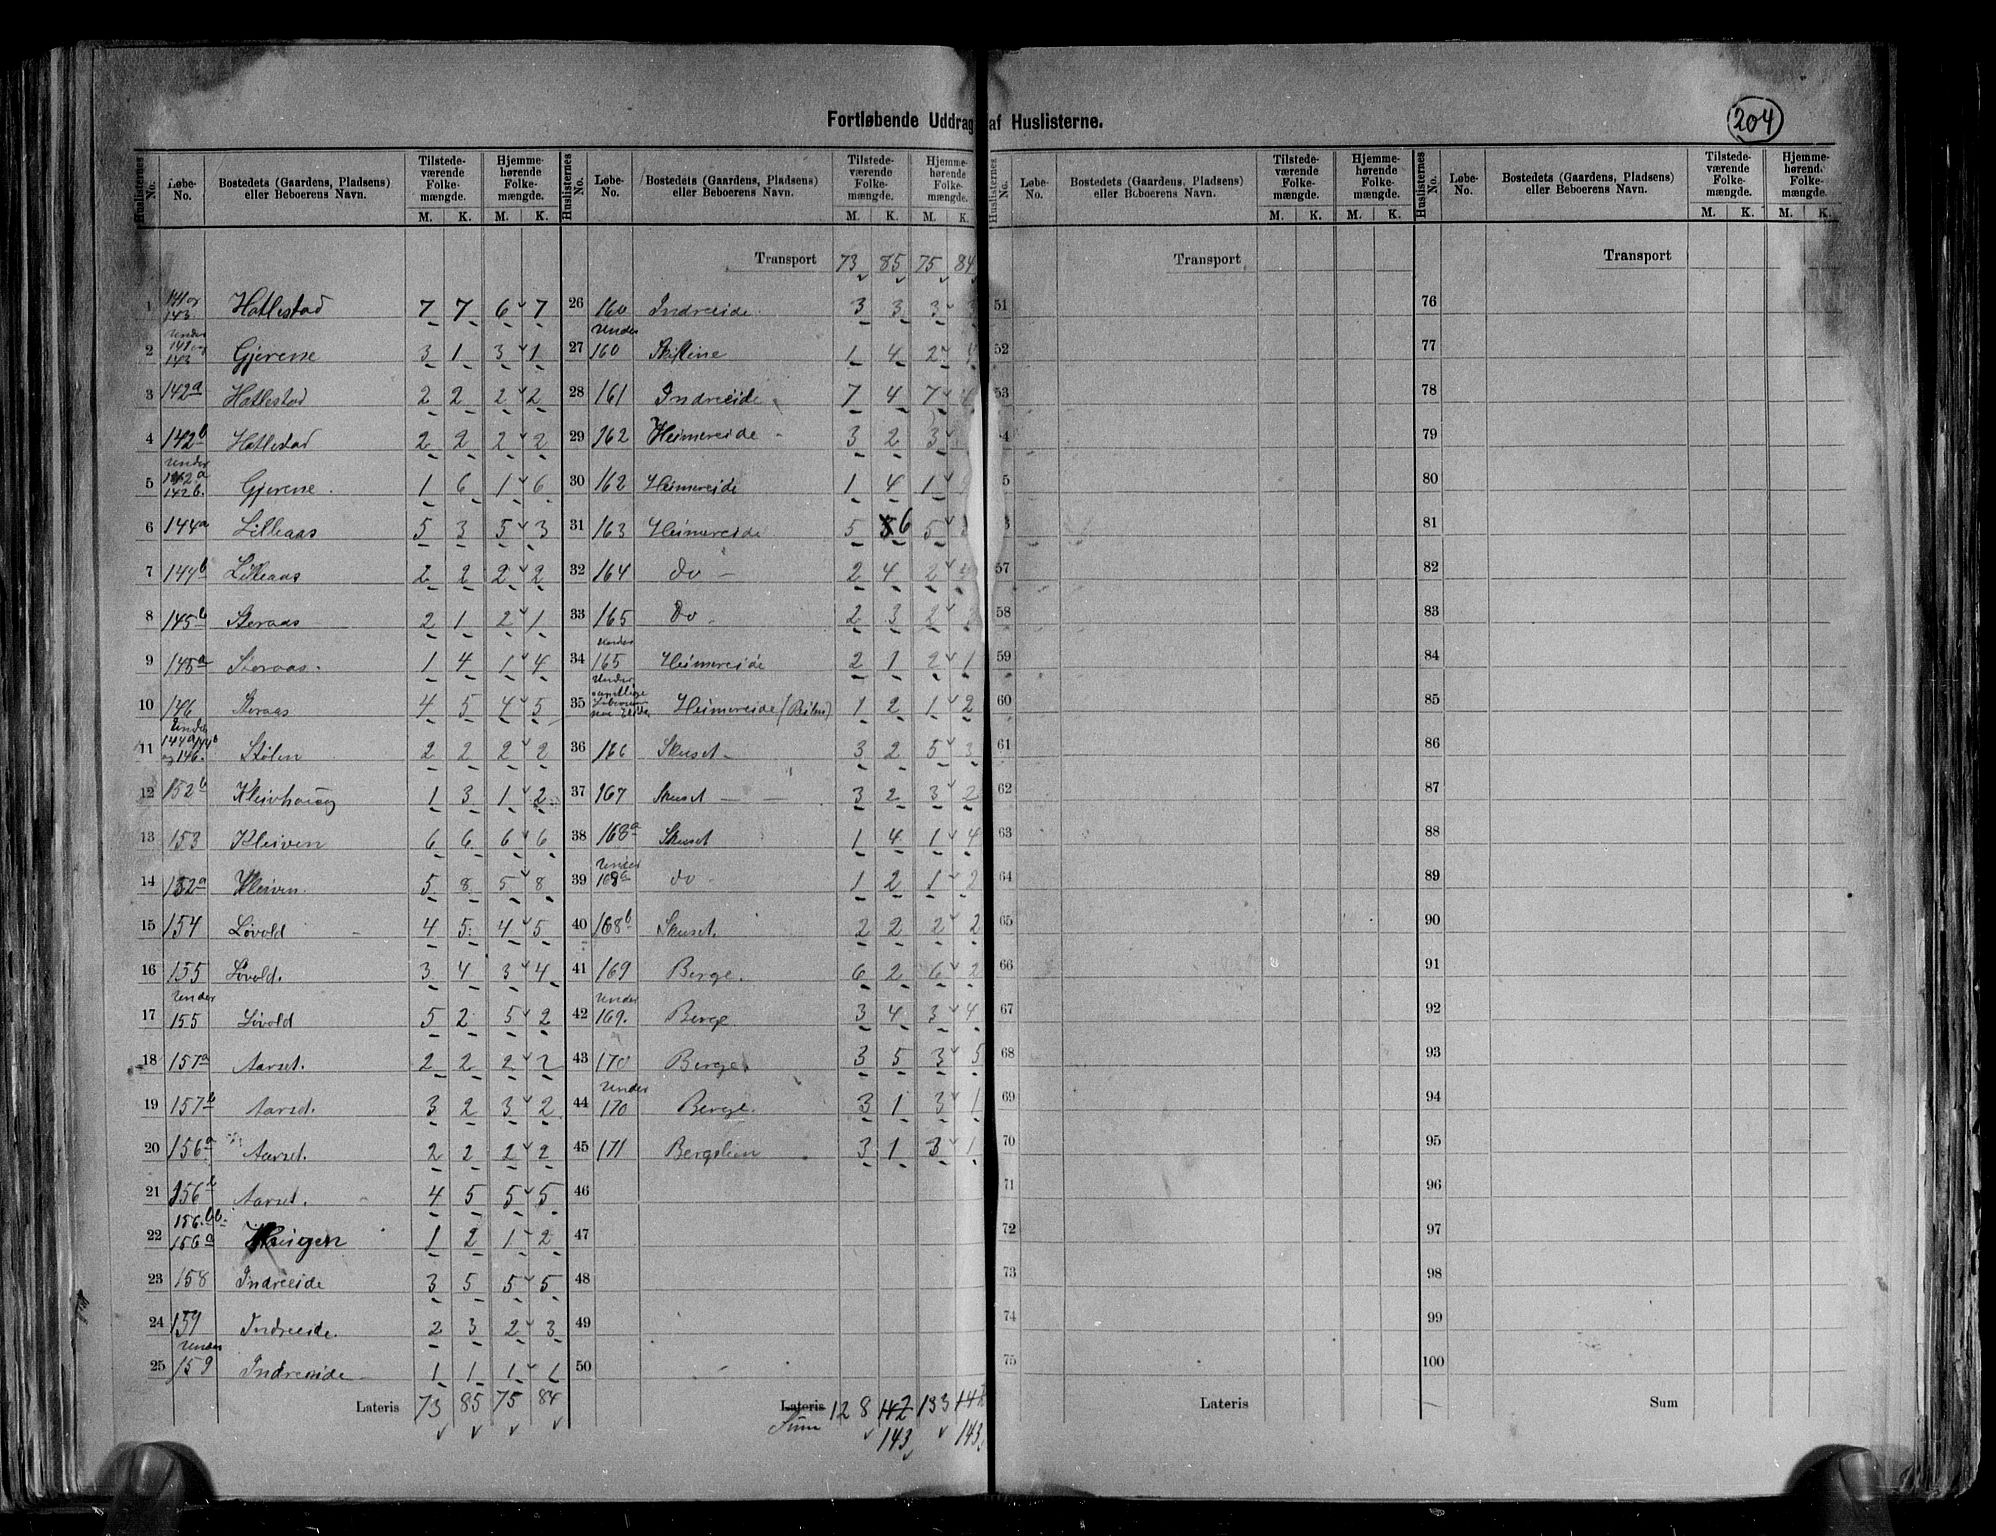 204
Fortløbende Uddrag af Huslisterne.
Huslisternes No. Løbe-No. Bostedets (Gaardens, Pladsens) eller Beboerens Navn. Tilstedeværende Folkemængde. M. K. Hjemmehørende Folkemængde. M. K.
1 141 og 143. Hatlestad 7 7 6 7
2 Under 141 og 143 Gjerene 3 1 3 1
3 142a Hatlestad 2 2 2 2
4 142b Hatlestad 2 2 2 2
5 Under 142a 142b. Gjerene. 1 6 1 6
6 144a Lilleaas 5 3 5 3
7 144b Lilleaas 2 2 2 2
8 145b Storaas 2 1 2 1
9 145a Storaas. 1 4 1 4
10 146 Storaas 4 5 4 5
11 Under 144a 144b og 146. Stølen 2 2 2 2
12 152b Kleivhaug 1 3 1 2
13 153 Kleiven 6 6 6 6
14 152a Kleiven. 5 8 5 8
15 154 Løvold 4 5 4 5
16 155 Løvold. 3 4 3 4
17 Under 155 Løvold 5 2 5 2
18 157a Aarset. 2 2 2 2
19 157b Aarset. 3 2 3 2
20 156a Aarset. 2 2 2 2
21 156b Aarset. 4 5 5 5
22 156.bb. 156a 1 2 1 2
23 158 Indreeide 3 5 5 5
24 159 Indreeide. 2 3 2 3
25 Under 159 Indreeide 1 1 1 1
Lateris 73 85 75 84
Huslisternes No. Løbe-No. Bostedets (Gaardens, Pladsens) eller Beboerens Navn. Tilstedeværende Folkemængde. M. K. Hjemmehørende Folkemængde. M. K.
Transport 73 85 75 84
26 160 Indreeide. 3 3 3 3
27 Under 160 1 4 2 4
28 161 Indreeide 7 4 7
29 162 Heimereide 3 2 3
30 162 Heimereide 1 4 1
31 163 Heimereide 5 6 5
32 164 do 2 4 2
33 165 Do 2 3 2 3
34 Under 165 Heimereide 2 1 2 1
35 Under samtlige Heimereide 1 2 1 2
36 166 Skuset 3 2 5 3
37 167 Skuset 3 2 3 2
38 168a Skuset 1 4 1 4
39 Under 168a do 1 2 1 2
40 168b Skuset. 2 2 2 2
41 169 Berge. 6 2 6 2
42 Under 169. Berge 3 4 3 4
43 170 Berge. 3 5 3 5
44 Under 170 Berge. 3 1 3 1
45 171 Bergslien 3 1 3 1
46
47
48
49
50
Lateris 128 142 133
Sum 143 143
Huslisternes No. Løbe-No. Bostedets (Gaardens, Pladsens) eller Beboerens Navn. Tilstedeværende Folkemængde. M. K. Hjemmehørende Folkemængde. M. K.
Transport
51
52
53
4
5
57
58
59
60
61
62
63
64
65
66
67
68
69
70
71
72
73
74
75
Lateris
Huslisternes No. Løbe-No. Bostedets (Gaardens, Pladsens) eller Beboerens Navn. Tilstedeværende Folkemængde. M. K. Hjemmehørende Folkemængde. M. K.
Transport
76
77
78
79
80
81
82
83
84
85
86
87
88
89
90
91
92
93
94
95
96
97
98
99
100
Sum